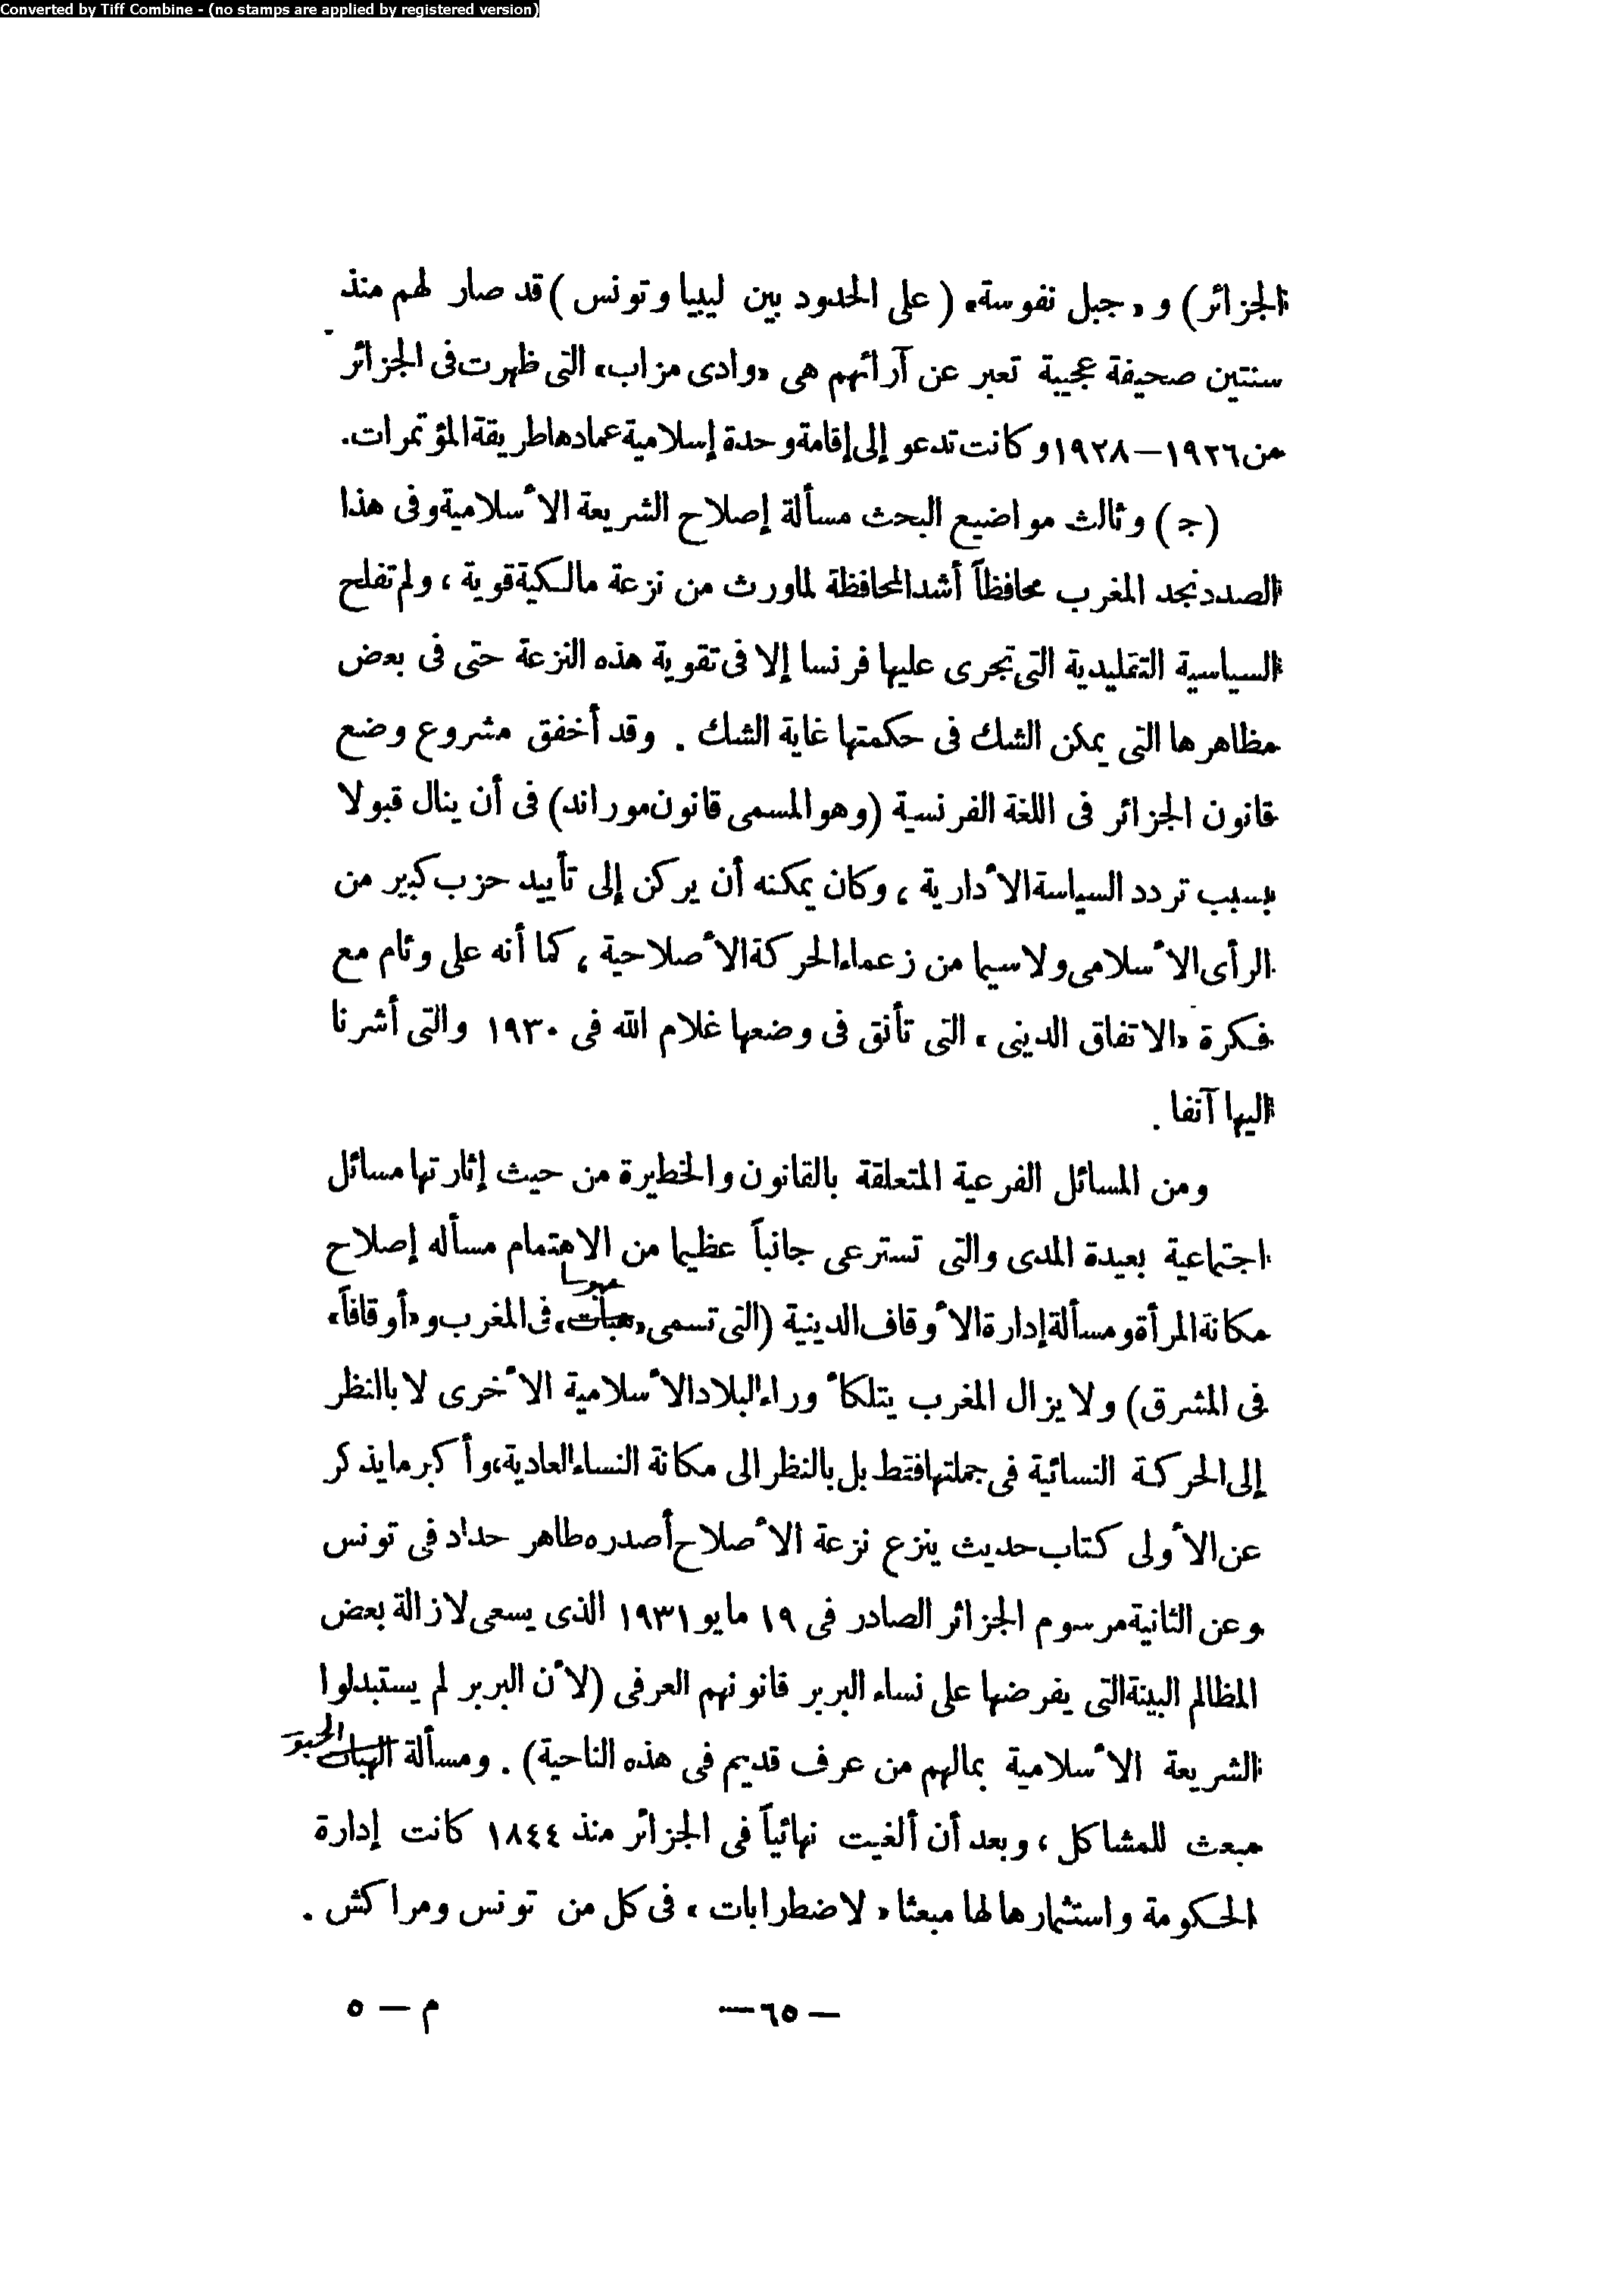 Converted by Tiff Combine - (no stamps are applied by registered version)
الجزائر) و «جبل نفوسة» (على الحدود بين ليبيا وتونس) قد صار لهم منذ
سنتين صحيفة عجيبة تعبر عن آرائهم هى «وادى مزاب» التى ظهرت فى الجزائر
من ١٩٢٦ – ١٩٢٨ وكانت تدعو إلى إقامة وحدة إسلامية عمادها طريقة المؤتمرات.
(ج) وثالث مواضيع البحث مسألة إصلاح الشريعة الأسلامية وفى هذا
الصدد نجد المغرب محافظاً أشد المحافظة لما ورث من نزعة مالكية قوية ، ولم تفلح
السياسية التقليدية التى تجرى عليها فرنسا إلا فى تقوية هذه النزعة حتى فى بعض
مظاهرها التى يمكن الشك فى حكمتها غاية الشك . وقد أخفق مشروع وضع
قانون الجزائر فى اللغة الفرنسية (وهو المسمى قانون موراند) فى أن ينال قبولا
بسبب تردد السياسة الأدارية ، وكان يمكنه أن يركن إلى تأييد حزب كبير من
الرأى الأسلامى ولاسيما من زعماء الحركة الأصلاحية ، كما أنه على وئام مع
فكرة «الاتفاق الدينى» التى تأنق فى وضعها غلام الله فى ١٩٣٠ والتى أشرنا
اليها آنفا .
ومن المسائل الفرعية المتعلقة بالقانون والخطيرة من حيث إثارتها مسائل
اجتماعية بعيدة المدى والتى تسترعى جانباً عظيما من الاهتمام مسأله إصلاح
مكانة المرأة ومسألة إدارة الأوقاف الدينية (التى تسمى «هبات» فى المغرب و«أوقافاً»
فى المشرق) ولا يزال المغرب يتلكأ وراء البلاد الأسلامية الأخرى لا بالنظر
إلى الحركة النسائية فى جملتها فقط بل بالنظر الى مكانة النساء العادية، وأكبر ما يذكر
عن الأولى كتاب حديث ينزع نزعة الأصلاح أصدره طاهر حداد فى تونس
وعن الثانية مرسوم الجزائر الصادر فى ١٩ مايو ١٩٣١ الذى يسعى لازالة بعض
المظالم البينة التى يفرضها على نساء البربر قانونهم العرفى (لأن البربر لم يستبدلوا
الشريعة الأسلامية بمالهم من عرف قديم فى هذه الناحية) . ومسألة الهبات
مبعث للمشاكل ، وبعد أن ألغيت نهائياً فى الجزائر منذ ١٨٤٤ كانت إدارة
الحكومة واستثمارها لها مبعثا «لاضطرابات» فى كل من تونس ومراكش .
— ٦٥ —
م — ٥